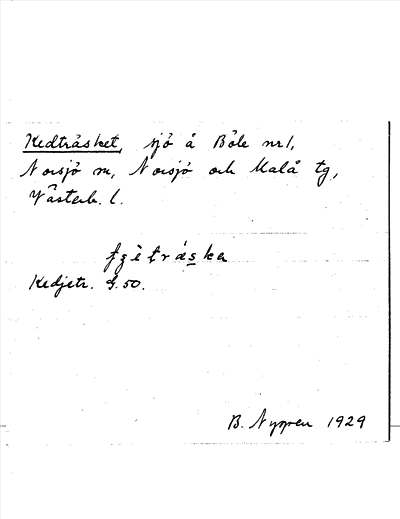 Kedträsket, sjö å Böle nr 1,
Norsjö sn, Norsjö och Malå tg,
Västerb. l.
Kedjetr. G.50.
B. Nygren 1929